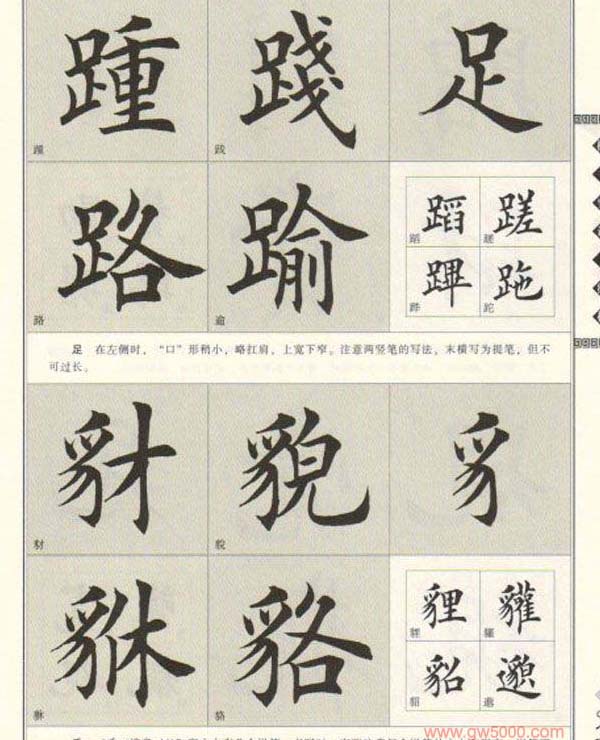 踵 踐 足
踵 践
路 踰
路 逾
蹈 蹉
蹈 蹉
蹕 跎
跸 跎
足 在左侧时，“口”形稍小，略扛肩，上宽下窄。注意两竖笔的写法，末横写为提笔，但不
可过长。
豺 貌 豸
豺 貌
貅 貉
貅 貉
貍 貛
貂 邈
貂 邈
www.gw5000.com